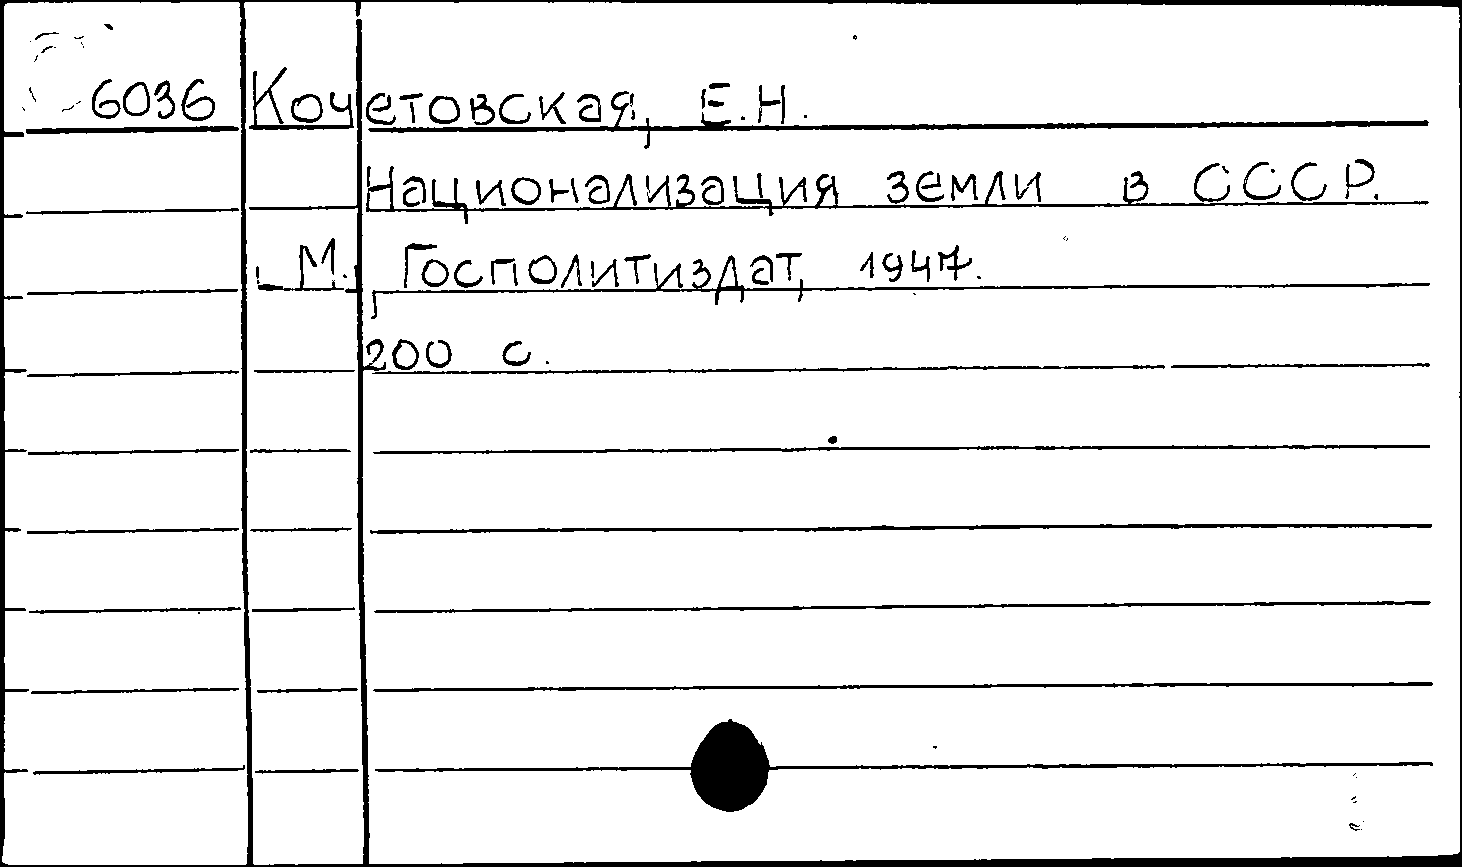 6036 Кочетовская, Е.Н.
Национализация земли в СССР.
М., Госполитиздат, 1947.
200 с.